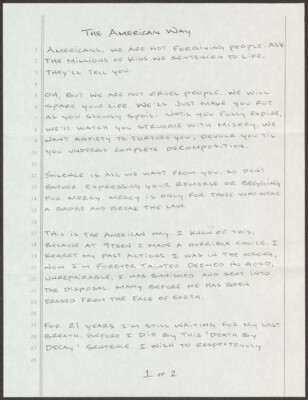 The American Way
Americans, we are not forgiving people. Ask
the millions of kids we sentenced to life,
they'll tell you.
Oh, but we are not cruel people. We will
spare your life. We'll just make you rot
as you slowly spoil. Until you fully expire,
we'll watch you struggle with misery. We
want anxiety to torture you, devour you til
you undergo complete decomposition.
Silence is all we want from you. So don't
bother expressing your remorse or begging
for mercy. Mercy is only for those who wear
a badge and break the law.
This is the American way. I know of this,
because at 19teen I made a horrible choice. I
regret my past actions. I was in the wrong,
now I'm forever tainted. Deemed no good,
unrepairable, I was banished and sent into
the disposal. Many before me has been
erased from the face of earth.
For 21 years I'm still waiting for my last
breath. Before I die by this "Death by
Decay" sentence, I wish to respectfully
1 of 2